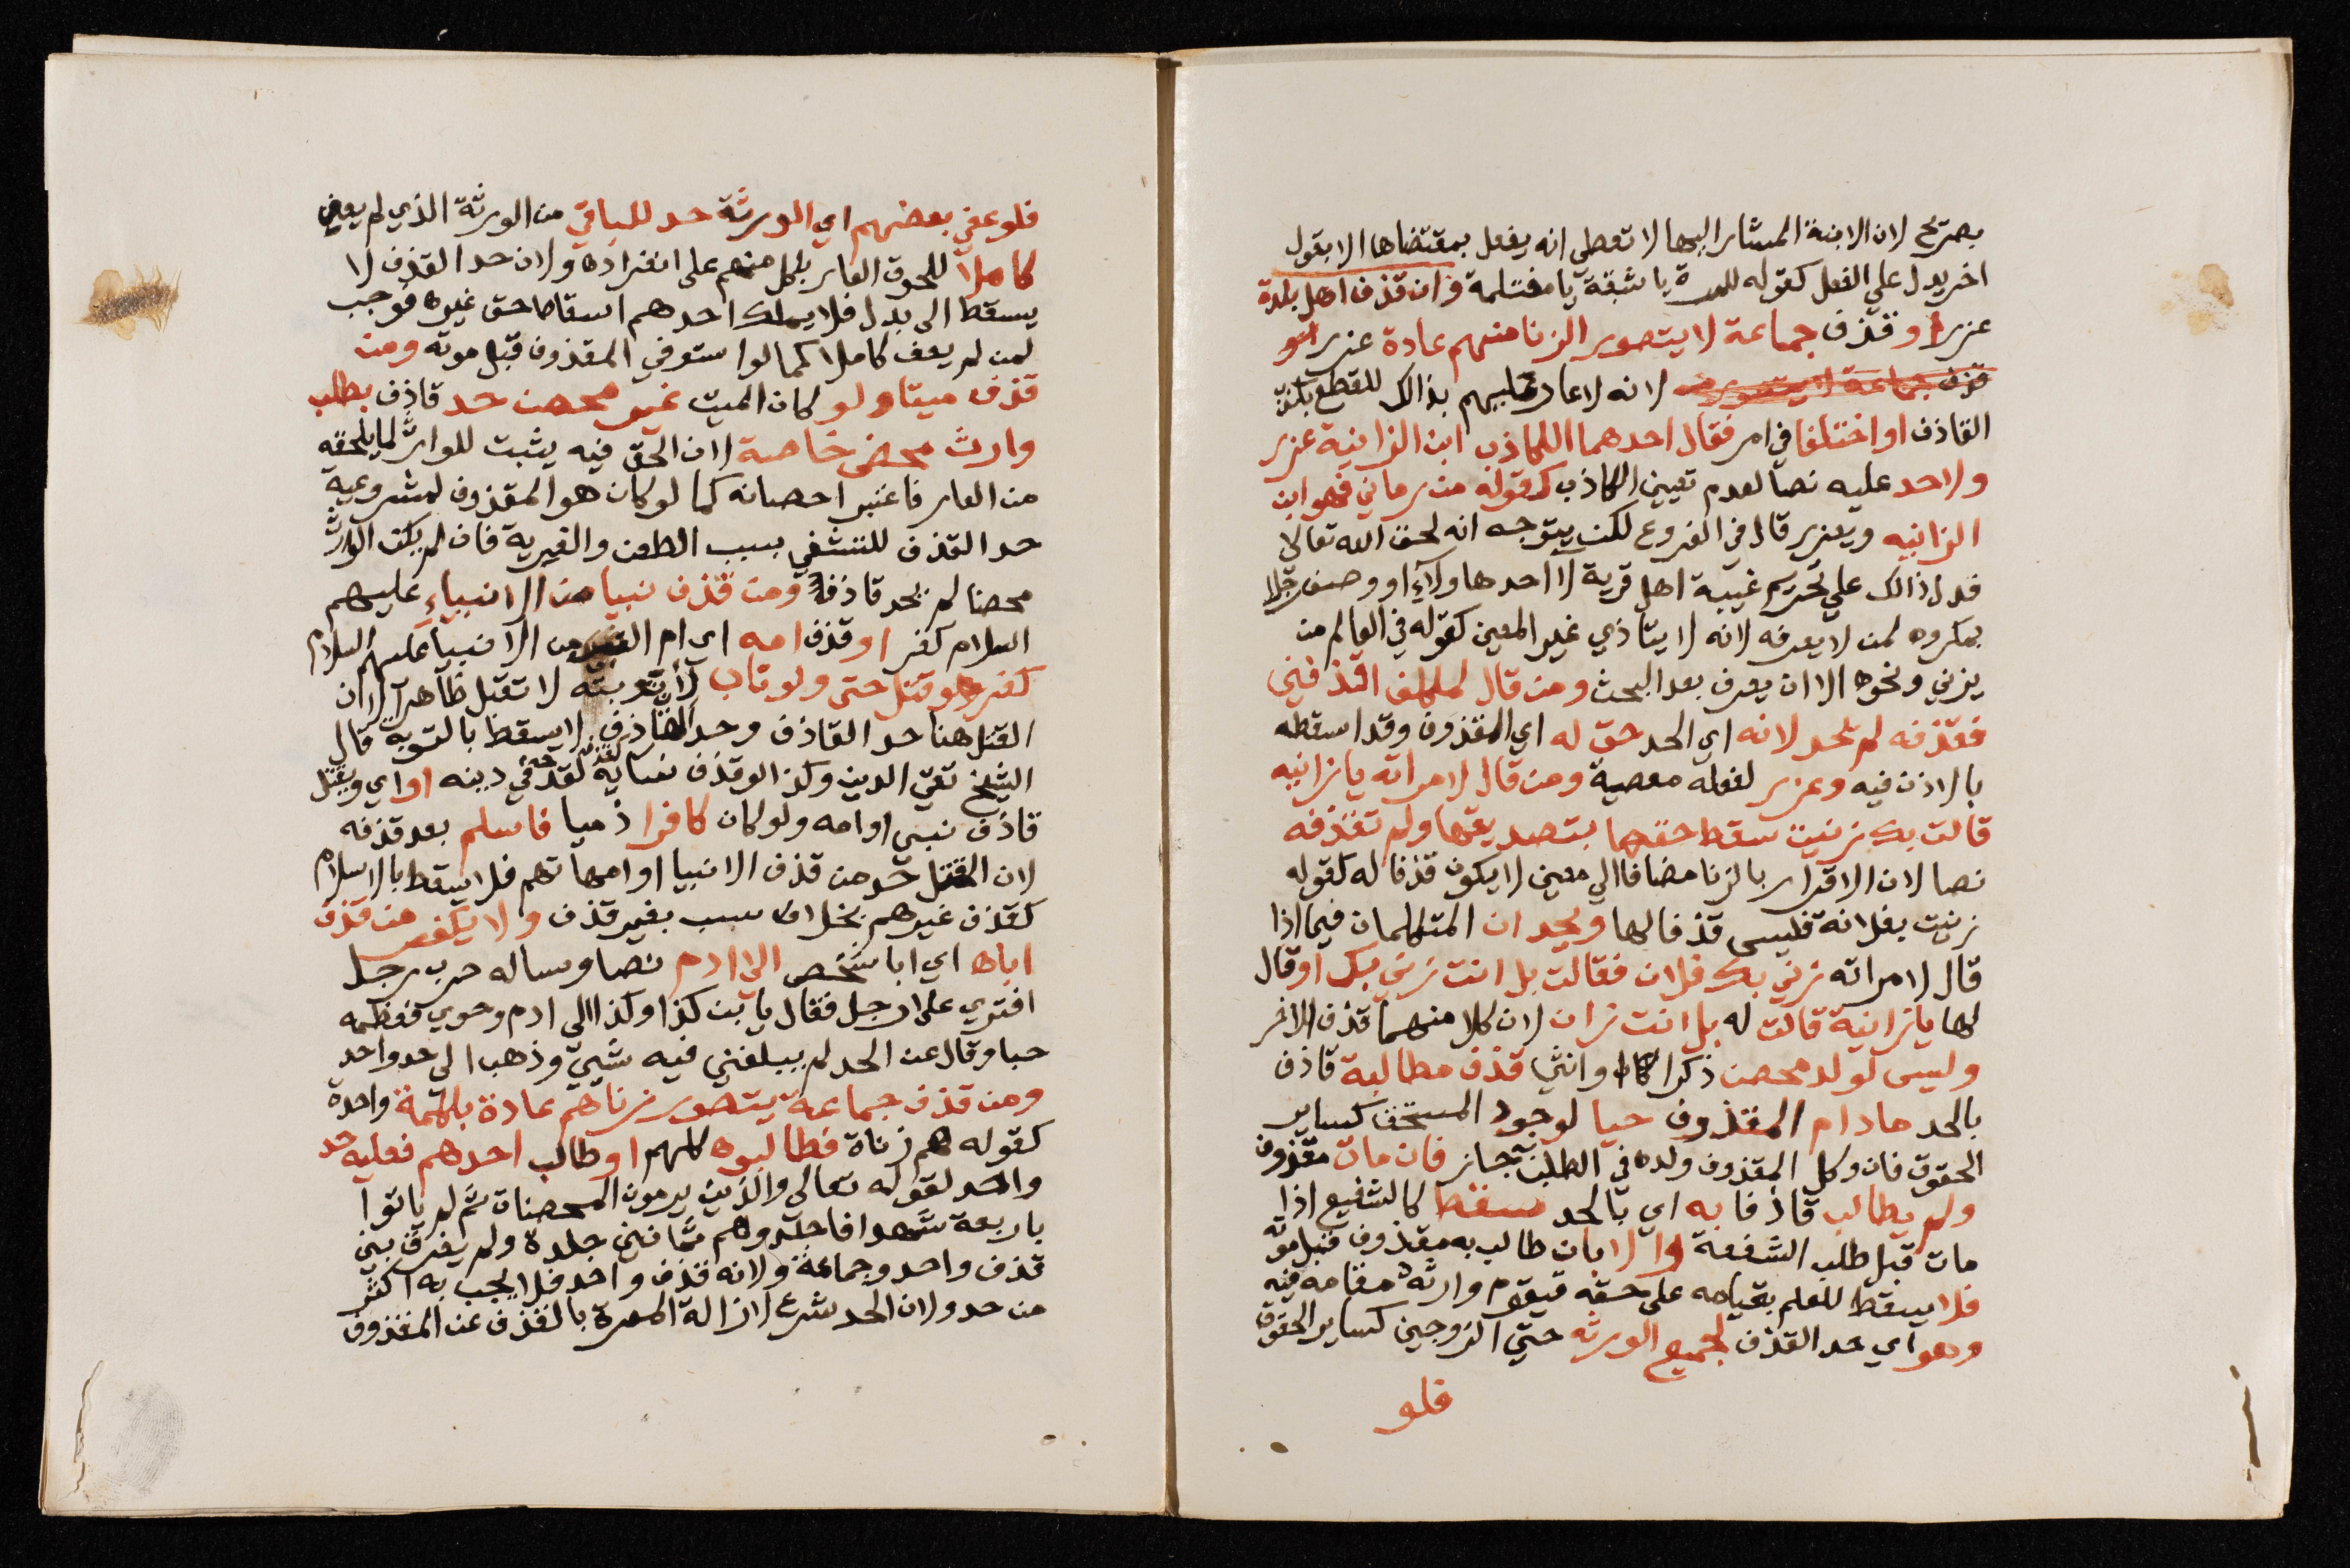 بصريح لان الابنة المشار اليها لا تعطي انه يفعل بمقتضاها الا بقول
اخر يدل علي الفعل كقوله للمرة يا شبقة يا مغتلمة وان قذف اهل بلدة
عزر او قذف جماعة لا يتصور الزنا منهم عادة عزر
قذف جماعة لا يتصور لانه لا عار عليهم بذالك للقطع بكذب
القاذف او اختلفا في امر فقال احدهما الكاذب ابن الزانية عزر
ولا حد عليه نصا لعدم تعيين الكاذب كقوله من رماني فهو ابن
الزانيه ويعزر قال في الفروع لكن يتوجه انه لحق الله تعالي
فدل ذالك علي تحريم غيبة اهل قرية لا احد هاولاء او وصف رجلا
بمكروه لمن لا يعرفه لانه لا يتاذي غير المعين كقوله في العالم من
يزني ونحوه الا ان يعرف بعد البحث ومن قال لمكلف اقذفني
فقذفه لم يحد لانه اي الحد حق له اي المقذوف وقد اسقطه
بالاذن فيه وعزر لفعله معصية ومن قال لامراته يا زانيه
قالت بك زنيت سقط حقها بتصديقها ولم تقذفه
نصا لان الاقرار بالزنا مضافا الي معين لا يكون قذفا له كقوله
زنيت بفلانة فليس قذفا لها ويحدان المتكلمان فيما اذا
قال لامراته زني بك فلان فقالت بل انت زني بك او قال
لها يا زانية قالت له بل انت زان لان كلا منهما قذف الاخر
وليس لولد محصن ذكرا كان او انثي قذف مطالبة قاذف
بالحد مادام المقذوف حيا لوجود المستحق كساير
الحقوق فان وكل المقذوف ولده في الطلب به جاز فان مات مقذوف
ولم يطالب قاذفا به اي بالحد سقط كالشفيع اذا
مات قبل طلب الشفعة والا بان طالب به مقذوف قبل موته
فلا يسقط للعلم بقيامه علي حقه فيقوم وارثه مقامه فيه
وهو اي حد القذف لجميع الورثه حتي الزوجين كساير الحقوق
فلو
فلو عفي بعضهم اي الورثة حد للباقي من الورثة الذي لم يعف
كاملا للحوق العار بكل منهم علي انفراده ولان حد القذف لا
يسقط الي بدل فلا يملك احدهم اسقاط حق غيره فوجب
لمن لم يعف كاملا كما لو استوفي المقذوف قبل موته ومن
قذف ميتا ولو كان الميت غير محصن حد قاذف بطلب
وارث محصن خاصة لان الحق فيه يثبت للوارث لما يلحقه
من العار فاعتبر احصانه كما لو كان هو المقذوف لمشروعية
حد القذف للتشفي بسبب الطعن والفرية فان لم يكن الوارث
محصنا لم يحد قاذفه ومن قذف نبيا من الانبياء عليهم
السلام كفر او قذف امه اي ام النبي من الانبيا عليهم السلام
كفر وقتل حتي ولو تاب لان توبته لا تقبل ظاهرا لان
القتل هنا حد القاذف وحد القاذف لا يسقط بالتوبه قال
الشيخ تقي الدين وكذا لو قذف نسايه لقدحه في دينه او اي ويقتل
قاذف نبي او امه ولو كان كافرا ذميا فاسلم بعد قذفه
لان القتل حد من قذف الانبيا او امهاتهم فلا يسقط بالاسلام
كقذف غيرهم بخلاف سبب بغير قذف ولا يكفر من قذف
اباه اي ابا شخص الي ادم نصا وساله حرب رجل
افتري علي رجل فقال يا بن كذا وكذا الي ادم وحوي فعظمه
جدا وقال عن الحد لم يبلغني فيه شيي وذهب الي حد واحد
ومن قذف جماعة يتصور زناهم عادة بكلمة واحدة
كقوله هم زناة فطالبوه كلهم او طالب احدهم فعليه حد
واحد لقوله تعالي والذين يرمون المحصنات ثم لم ياتوا
باربعة شهدا فاجلدوهم ثمانين جلدة ولم يفرق بين
قذف واحد وجماعة ولانه قذف واحد فلا يجب به اكثر
من حد ولان الحد شرع لازالة المعرة بالقذف عن المقذوف